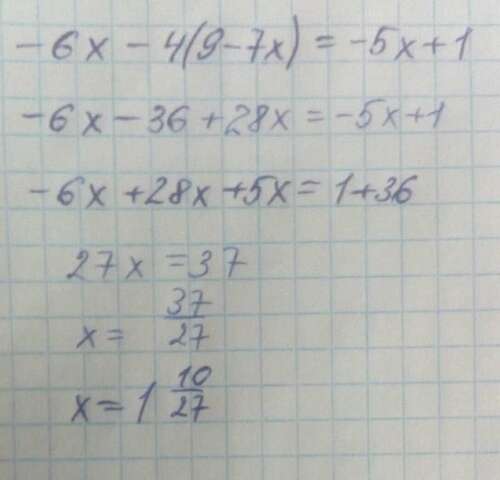 -6x - 4(9-7x) = -5x+1
-6x-36+28x = -5x+1
-6x+28x+5x = 1+36
27x = 37
x = 37/27
x = 1 10/27